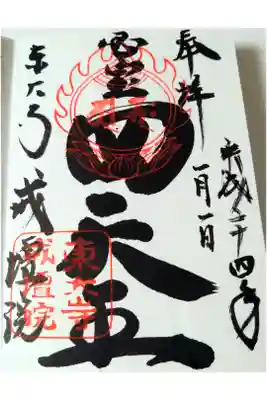 奉拝
平成二十四年
一月一日
四天王
東大寺戒壇院
東大寺
戒壇院